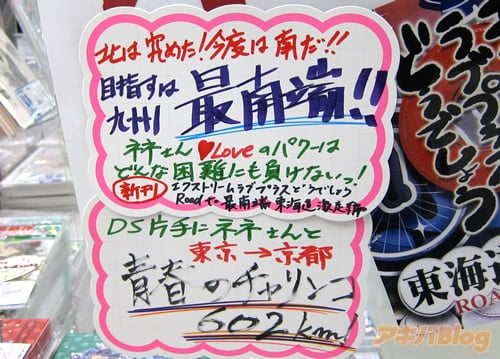 北は究めた!今度は南だ!!
目指すは
九州 最南端!!
ネネさん♥Loveのパワーは
どんな困難にも負けないっ!
新刊 エクストリームラブプラスどうでしょう
Road to 最南端 東海道激走編
DS片手にネネさんと
東京→京都
青春のチャリンコ
602km!
ラブプラス
どうでしょう
東海道
ROA
アキバBlog